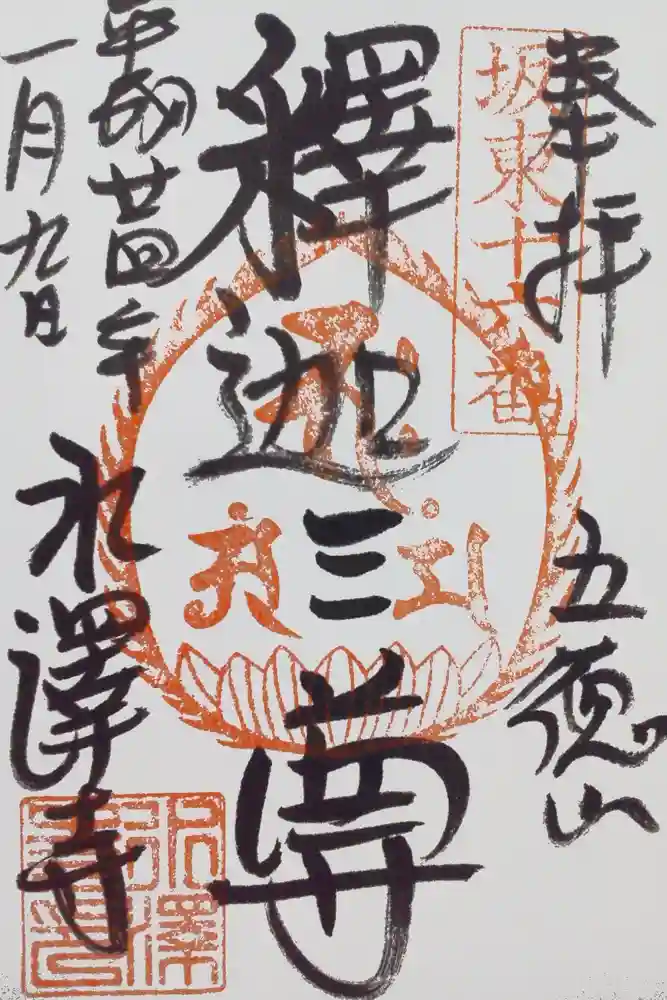 奉拝
五徳山
坂東十六番
釋迦三尊
平成廿四年
一月九日
水澤寺
水澤